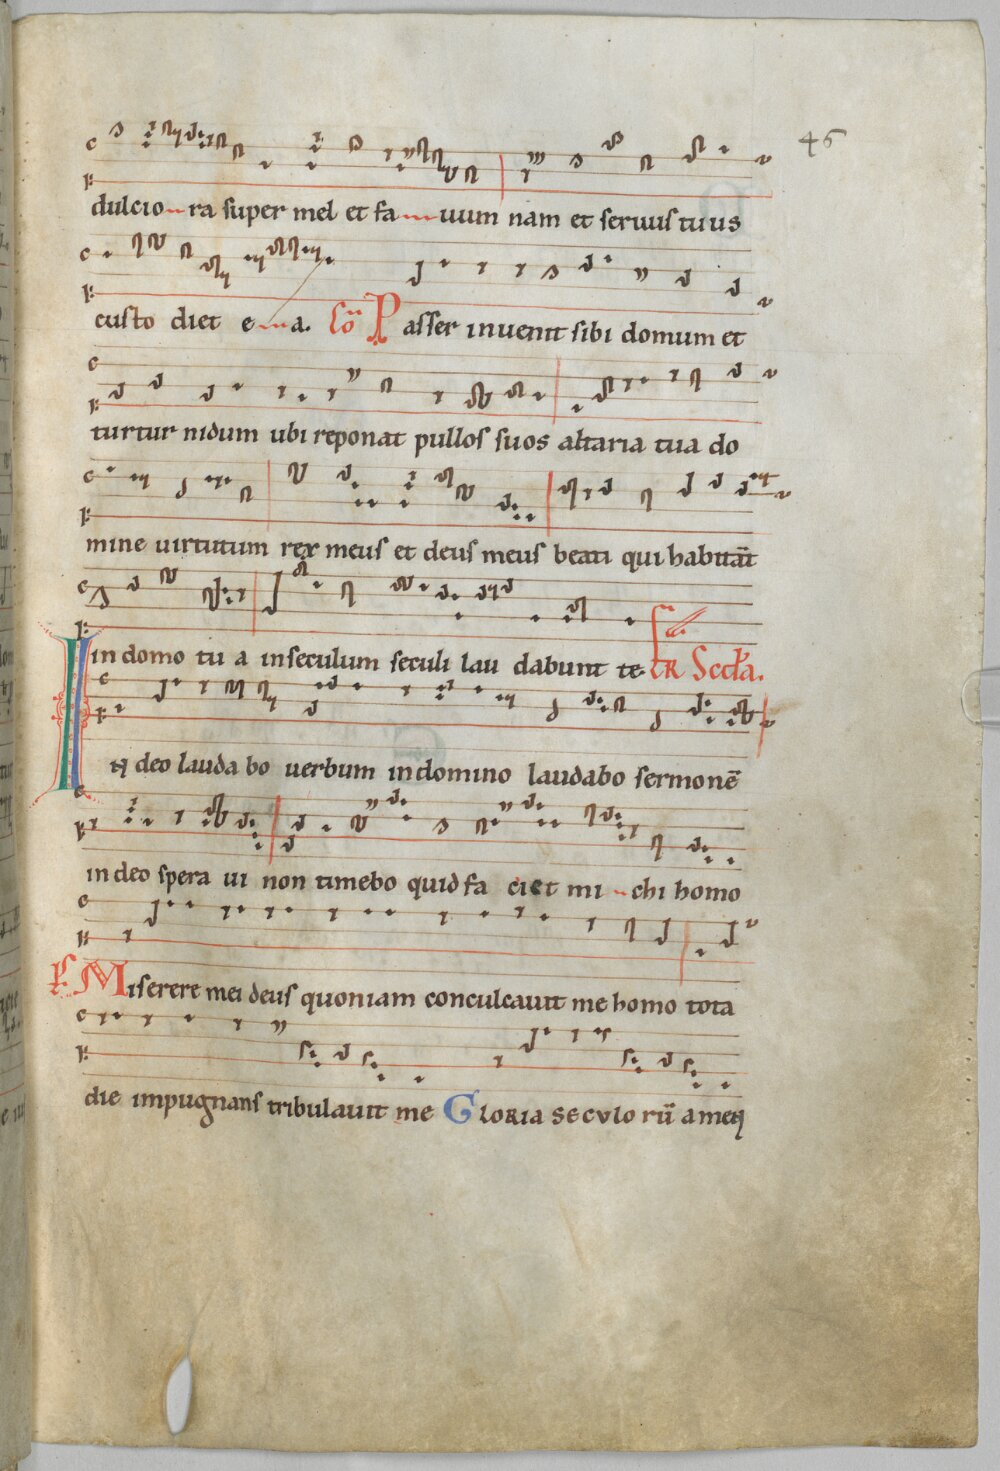 46
dulcio ra super mel et fa uum nam et seruus tuus
custo diet e a. Co Passer inuenit sibi domum et
turtur nidum ubi reponat pullos suos altaria tua do
mine uirtutum rex meus et deus meus beati qui habitāt
in domo tu a in seculum seculi lau dabunt te.
IN deo lauda bo uerbum in domino laudabo sermonē
in deo spera ui non timebo quid fa ciet mi chi homo
Miserere mei deus quoniam conculcauit me homo tota
die impugnans tribulauit me Gloria seculo rū amen